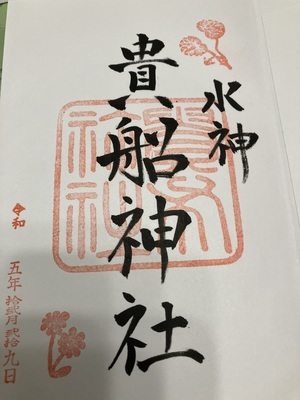 水神
貴船神社
令和
五年拾弐月弐拾九日